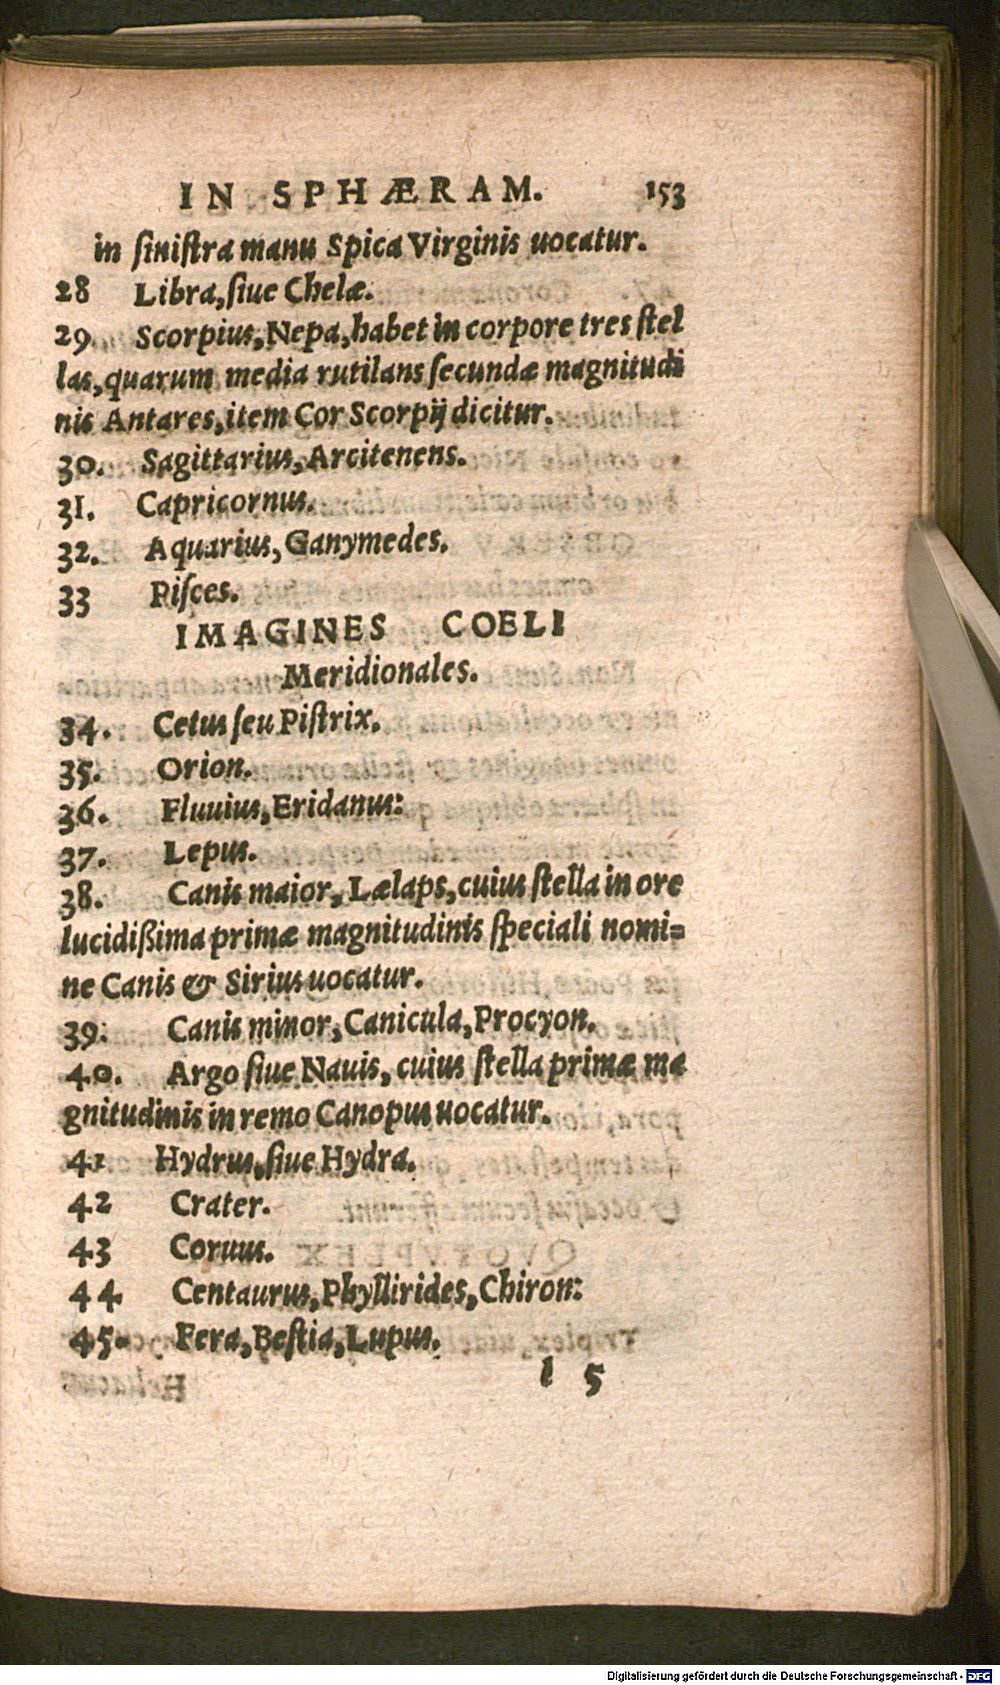 IN SPHÆRAM. 153
in ſiniſtra manu Spica Virginis uocatur.
28 Libra, ſiue Chelæ.
29 Scorpius, Nepa, habet in corpore tres ſtel
las, quarum media rutilans ſecundæ magnitudi
nis Antares, item Cor Scorpij dicitur.
30. Sagittarius, Arcitenens.
31. Capricornus.
32. Aquarius, Ganymedes.
33 Piſces.
IMAGINES COELI
Meridionales.
34. Cetus ſeu Piſtrix.
35. Orion.
36. Fluuius, Eridanus:
37. Lepus.
38. Canis maior, Lælaps, cuius ſtella in ore
lucidißima primæ magnitudinis ſpeciali nomi=
ne Canis & Sirius uocatur.
39: Canis minor, Canicula, Procyon.
40. Argo ſiue Nauis, cuius ſtella primæ ma
gnitudinis in remo Canopus uocatur.
41 Hydrus, ſiue Hydra.
42 Crater.
43 Coruus.
44 Centaurus, Phyllirides, Chiron:
45. Fera, Beſtia, Lupus.
l 5
Digitalisierung gefördert durch die Deutsche Forschungsgemeinschaft - DFG